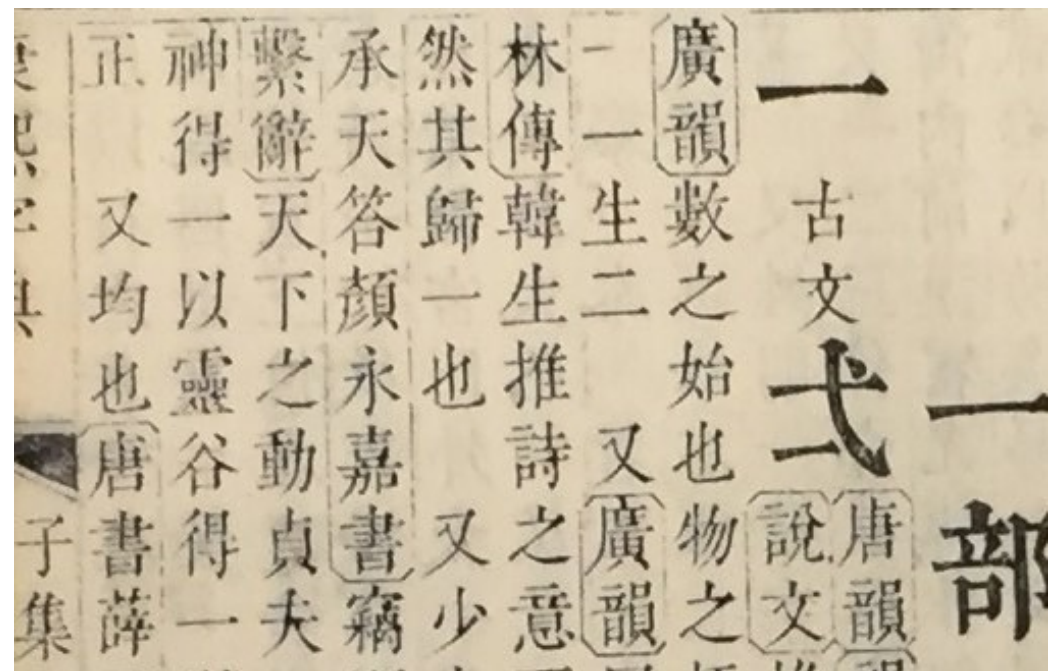 一部
一 古文弌 唐韻
說文
廣韻數之始也物之
一一生二 又廣韻
林傳韓生推詩之意
然其歸一也 又少
承天答顏永嘉書竊
繫辭天下之動貞夫
神得一以靈谷得一
正 又均也唐書薛
康熙字典 子集